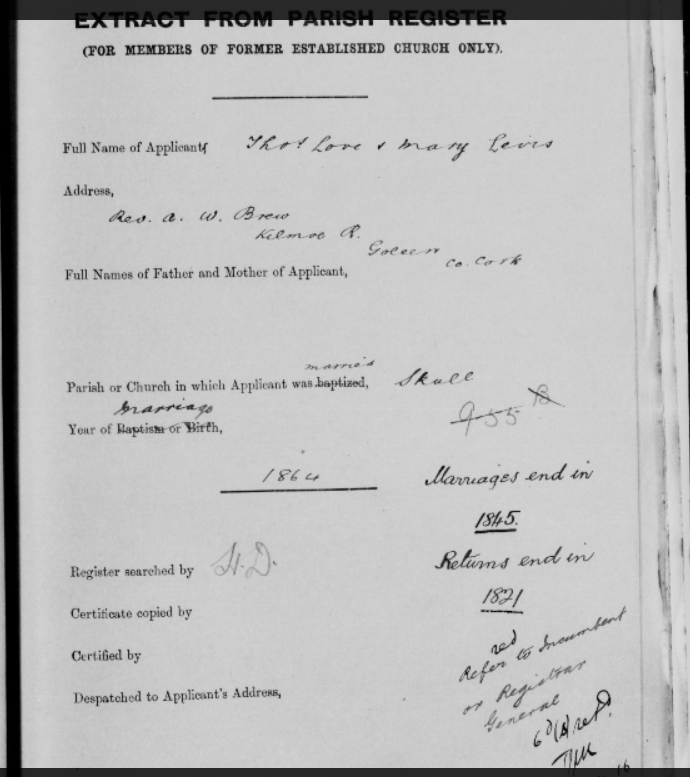 EXTRACT FROM PARISH REGISTER
(FOR MEMBERS OF FORMER ESTABLISHED CHURCH ONLY).
Full Name of Applicants Thos Love & Mary Levis
Address,
Rev. A. W. Brew
Kilmoe R.
Goleen
Co. Cork
Full Names of Father and Mother of Applicant,
married
Parish or Church in which Applicant was baptized, Skull
955 B
Marriage
Year of Baptism or Birth,
1864
Marriages end in
1845.
Returns end in
1821
Register searched by H.D.
Certificate copied by
Certified by
red
Refer to Incumbent
or Registrar
General
Despatched to Applicant's Address,
16